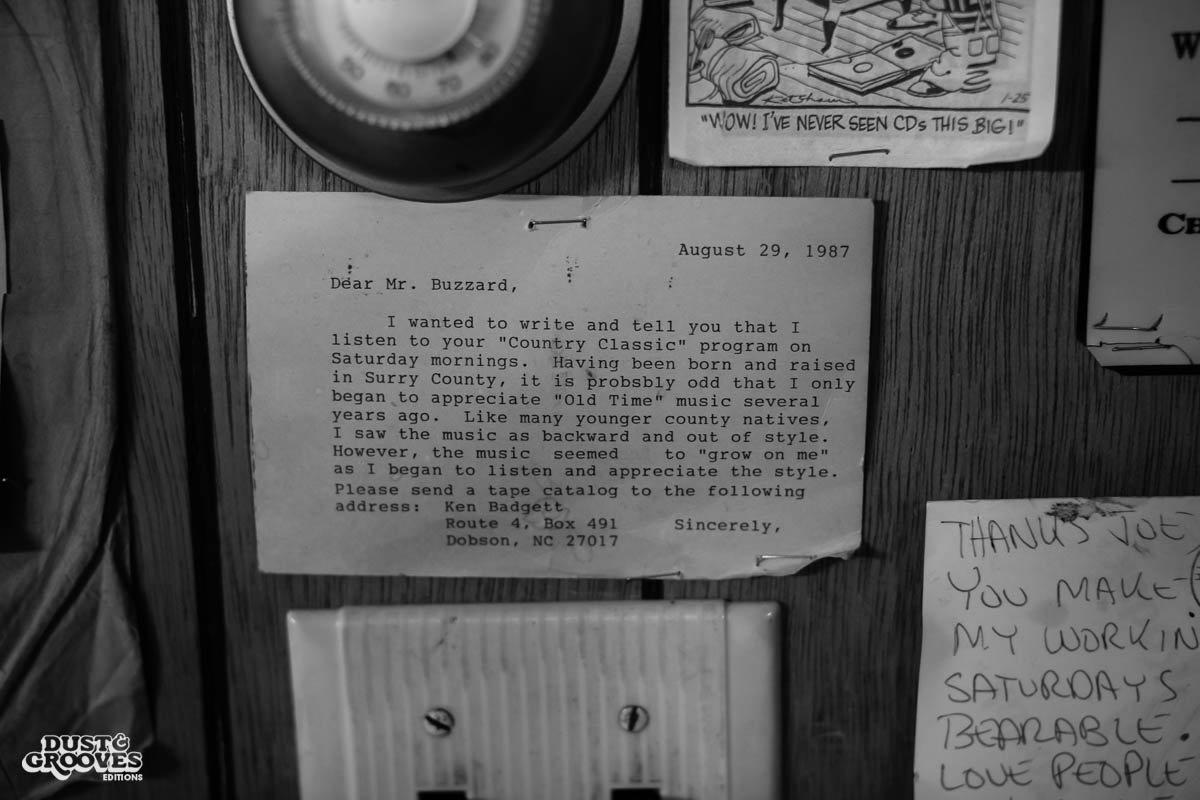 50 60 70 80
Ketcham 1-25
"WOW! I'VE NEVER SEEN CDs THIS BIG!"
August 29, 1987
Dear Mr. Buzzard,
I wanted to write and tell you that I
listen to your "Country Classic" program on
Saturday mornings. Having been born and raised
in Surry County, it is probsbly odd that I only
began to appreciate "Old Time" music several
years ago. Like many younger county natives,
I saw the music as backward and out of style.
However, the music seemed to "grow on me"
as I began to listen and appreciate the style.
Please send a tape catalog to the following
address: Ken Badgett
Route 4, Box 491 Sincerely,
Dobson, NC 27017
THANKS JOE,
YOU MAKE
MY WORKIN
SATURDAYS
BEARABLE.
LOVE PEOPLE
DUST &
GROOVES
EDITIONS